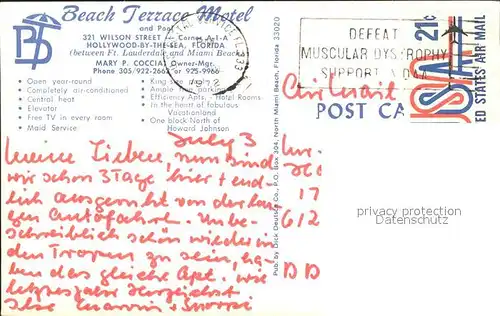 Beach Terrace Motel
and Pool
321 WILSON STREET - Corner A-1-A
HOLLYWOOD-BY-THE-SEA, FLORIDA
(between Ft. Lauderdale and Miami Beach)
MARY P. COCCIA, Owner-Mgr.
Phone 305/922-2662 or 925-9966
• Open year-round
• Completely air-conditioned
• Central heat
• Elevator
• Free TV in every room
• Maid Service
• King size
• Ample parking
• Efficiency Apts. - Hotel Rooms
• In the heart of fabulous
Vacationland
• One block North of
Howard Johnson
DEFEAT
MUSCULAR DYSTROPHY
SUPPORT
21c
USA
UNITED STATES AIR MAIL
POST CA
Pub. by Dick Deutsch Co., P.O. Box 304, North Miami Beach, Florida 33020
July 3
Meine Lieben, nun sind
wir schon 3 Tage hier + end-
lich ausgeruht von der lan-
gen Autofahrt. Unbe-
schreiblich schön wieder in
den Tropen zu sein, ha-
ben das gleiche Apt. wie
letztes Jahr Herzlichst
Ilse
17
612
DD
privacy protection
Datenschutz